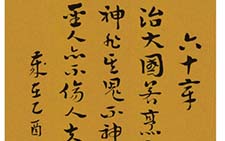 六十章
治大國若烹
神非其鬼不神
聖人亦不傷人夫
歲在乙酉